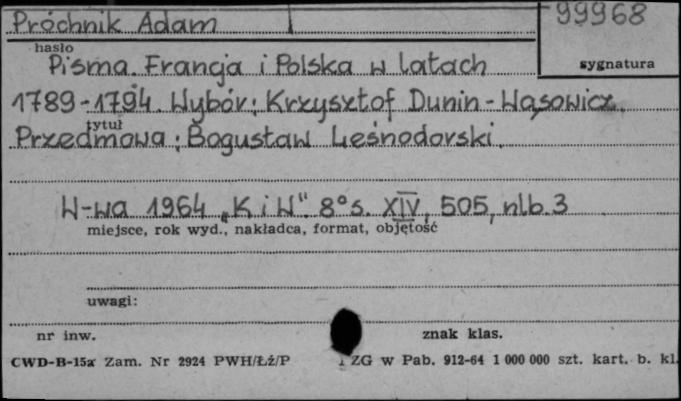 Próchnik Adam
99968
hasło
sygnatura
Pisma. Francja i Polska w latach
1789-1794. Wybór: Krzysztof Dunin-Wąsowicz.
tytuł
Przedmowa: Bogusław Leśnodorski.
W-wa 1964 „K i W". 8°s. XIV, 505, nlb. 3
miejsce, rok wyd., nakładca, format, objętość
uwagi:
nr inw.
znak klas.
CWD-B-15a Zam. Nr 2924 PWH/Łź/P
ZG w Pab. 912-64 1 000 000 szt. kart. b. kl.